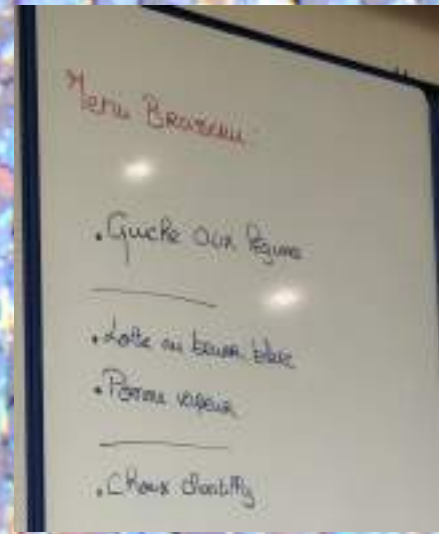 Menu Brasserie
• Quiche aux légumes
• Lotte au beurre blanc
• Pomme vapeur
• Choux chantilly